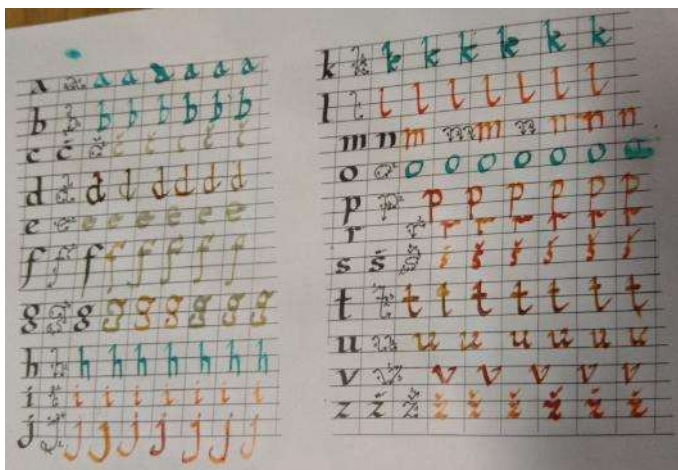 a a a a a a a a
b b b b b b b b
c č č č č c c č č
d d d d d d d d
e e e e e e e e
f f f f f f f f
g g g g g g g g g
h h h h h h h h
i i i i i i i i
j j j j j j j j j
k k k k k k k k
l l l l l l l l l
m n m m m n n n n
o o o o o o o o o
p p p p p p p p
r r r r r r r r
s š š š š š š š š
t t t t t t t t t
u u u u u u u u
v v v v v v v
z ž ž ž ž ž ž ž ž